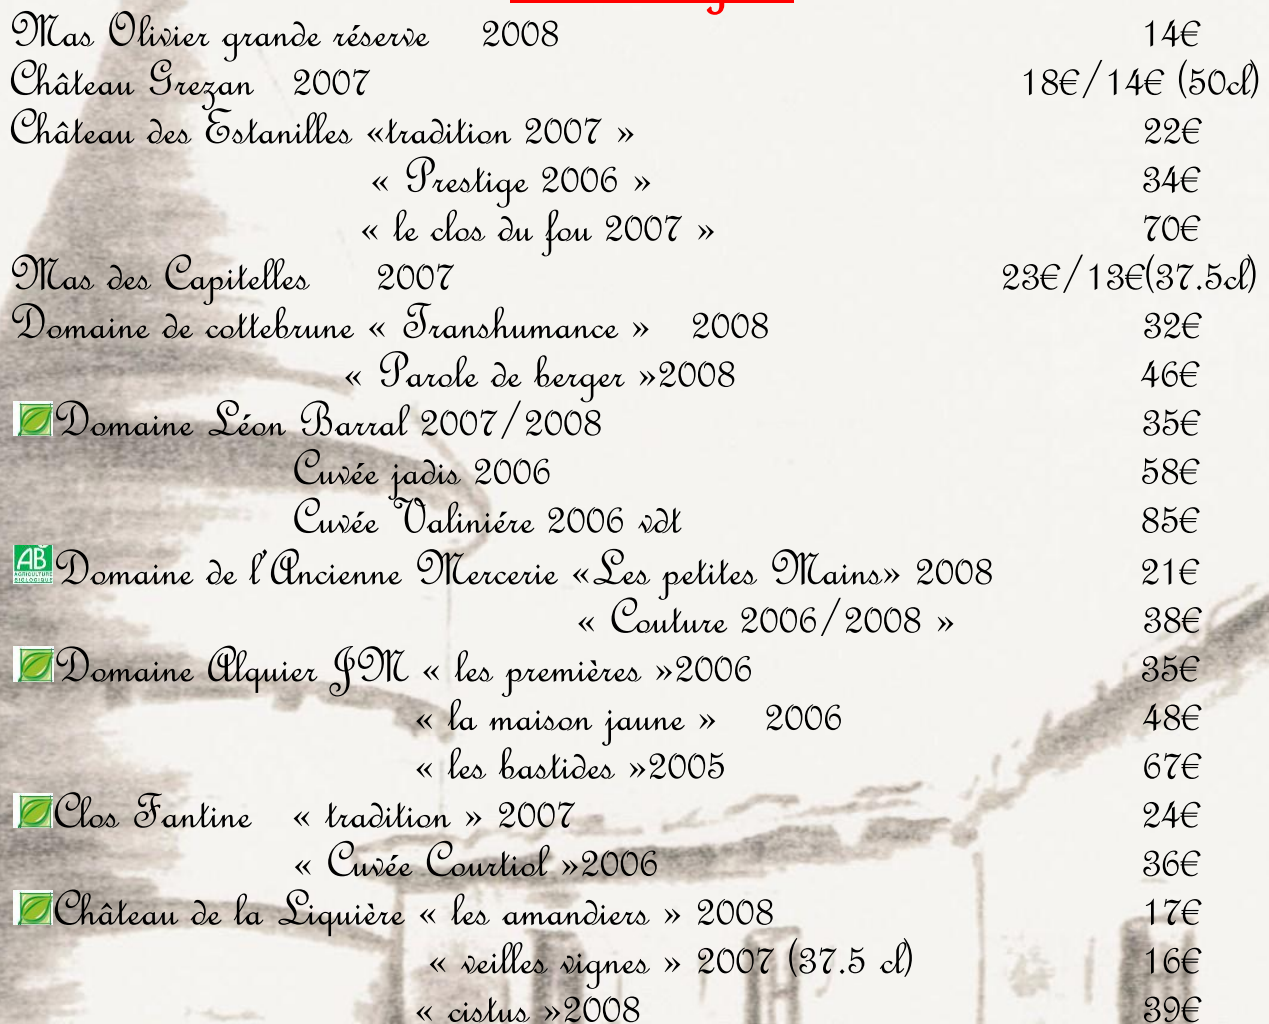 Mas Olivier grande réserve 2008 14€
Château Grezan 2007 18€/14€ (50cl)
Château des Estanilles «tradition 2007 » 22€
« Prestige 2006 » 34€
« le clos du fou 2007 » 70€
Mas des Capitelles 2007 23€/13€(37.5cl)
Domaine de cottebrune « Transhumance » 2008 32€
« Parole de berger »2008 46€
Domaine Léon Barral 2007/2008 35€
Cuvée jadis 2006 58€
Cuvée Valiniére 2006 vdt 85€
AB AGRICULTURE BIOLOGIQUE Domaine de l'Ancienne Mercerie «Les petites Mains» 2008 21€
« Couture 2006/2008 » 38€
Domaine Alquier JM « les premières »2006 35€
« la maison jaune » 2006 48€
« les bastides »2005 67€
Clos Fantine « tradition » 2007 24€
« Cuvée Courtiol »2006 36€
Château de la Liquière « les amandiers » 2008 17€
« veilles vignes » 2007 (37.5 cl) 16€
« cistus »2008 39€